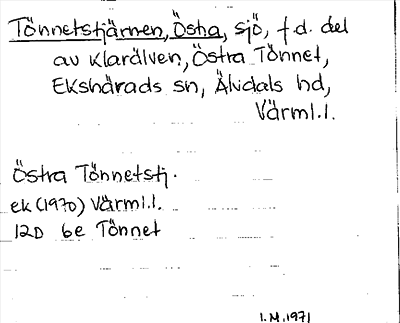 Tönnetstjärnen, Östra, sjö, f.d. del
av Klarälven, Östra Tönnet,
Ekshärads sn, Älvdals hd,
Värml.l.
Östra Tönnetstj.
ek (1970) Värml.l.
12D 6e Tönnet
I.M. 1971